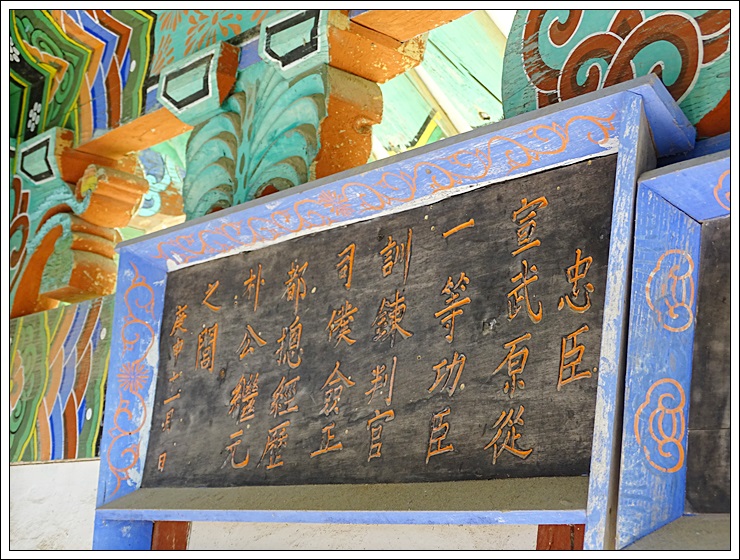 忠臣
宣武原從
一等功臣
訓鍊判官
司僕僉正
都摠經歷
朴公繼元
之閭
庚申十一月 日